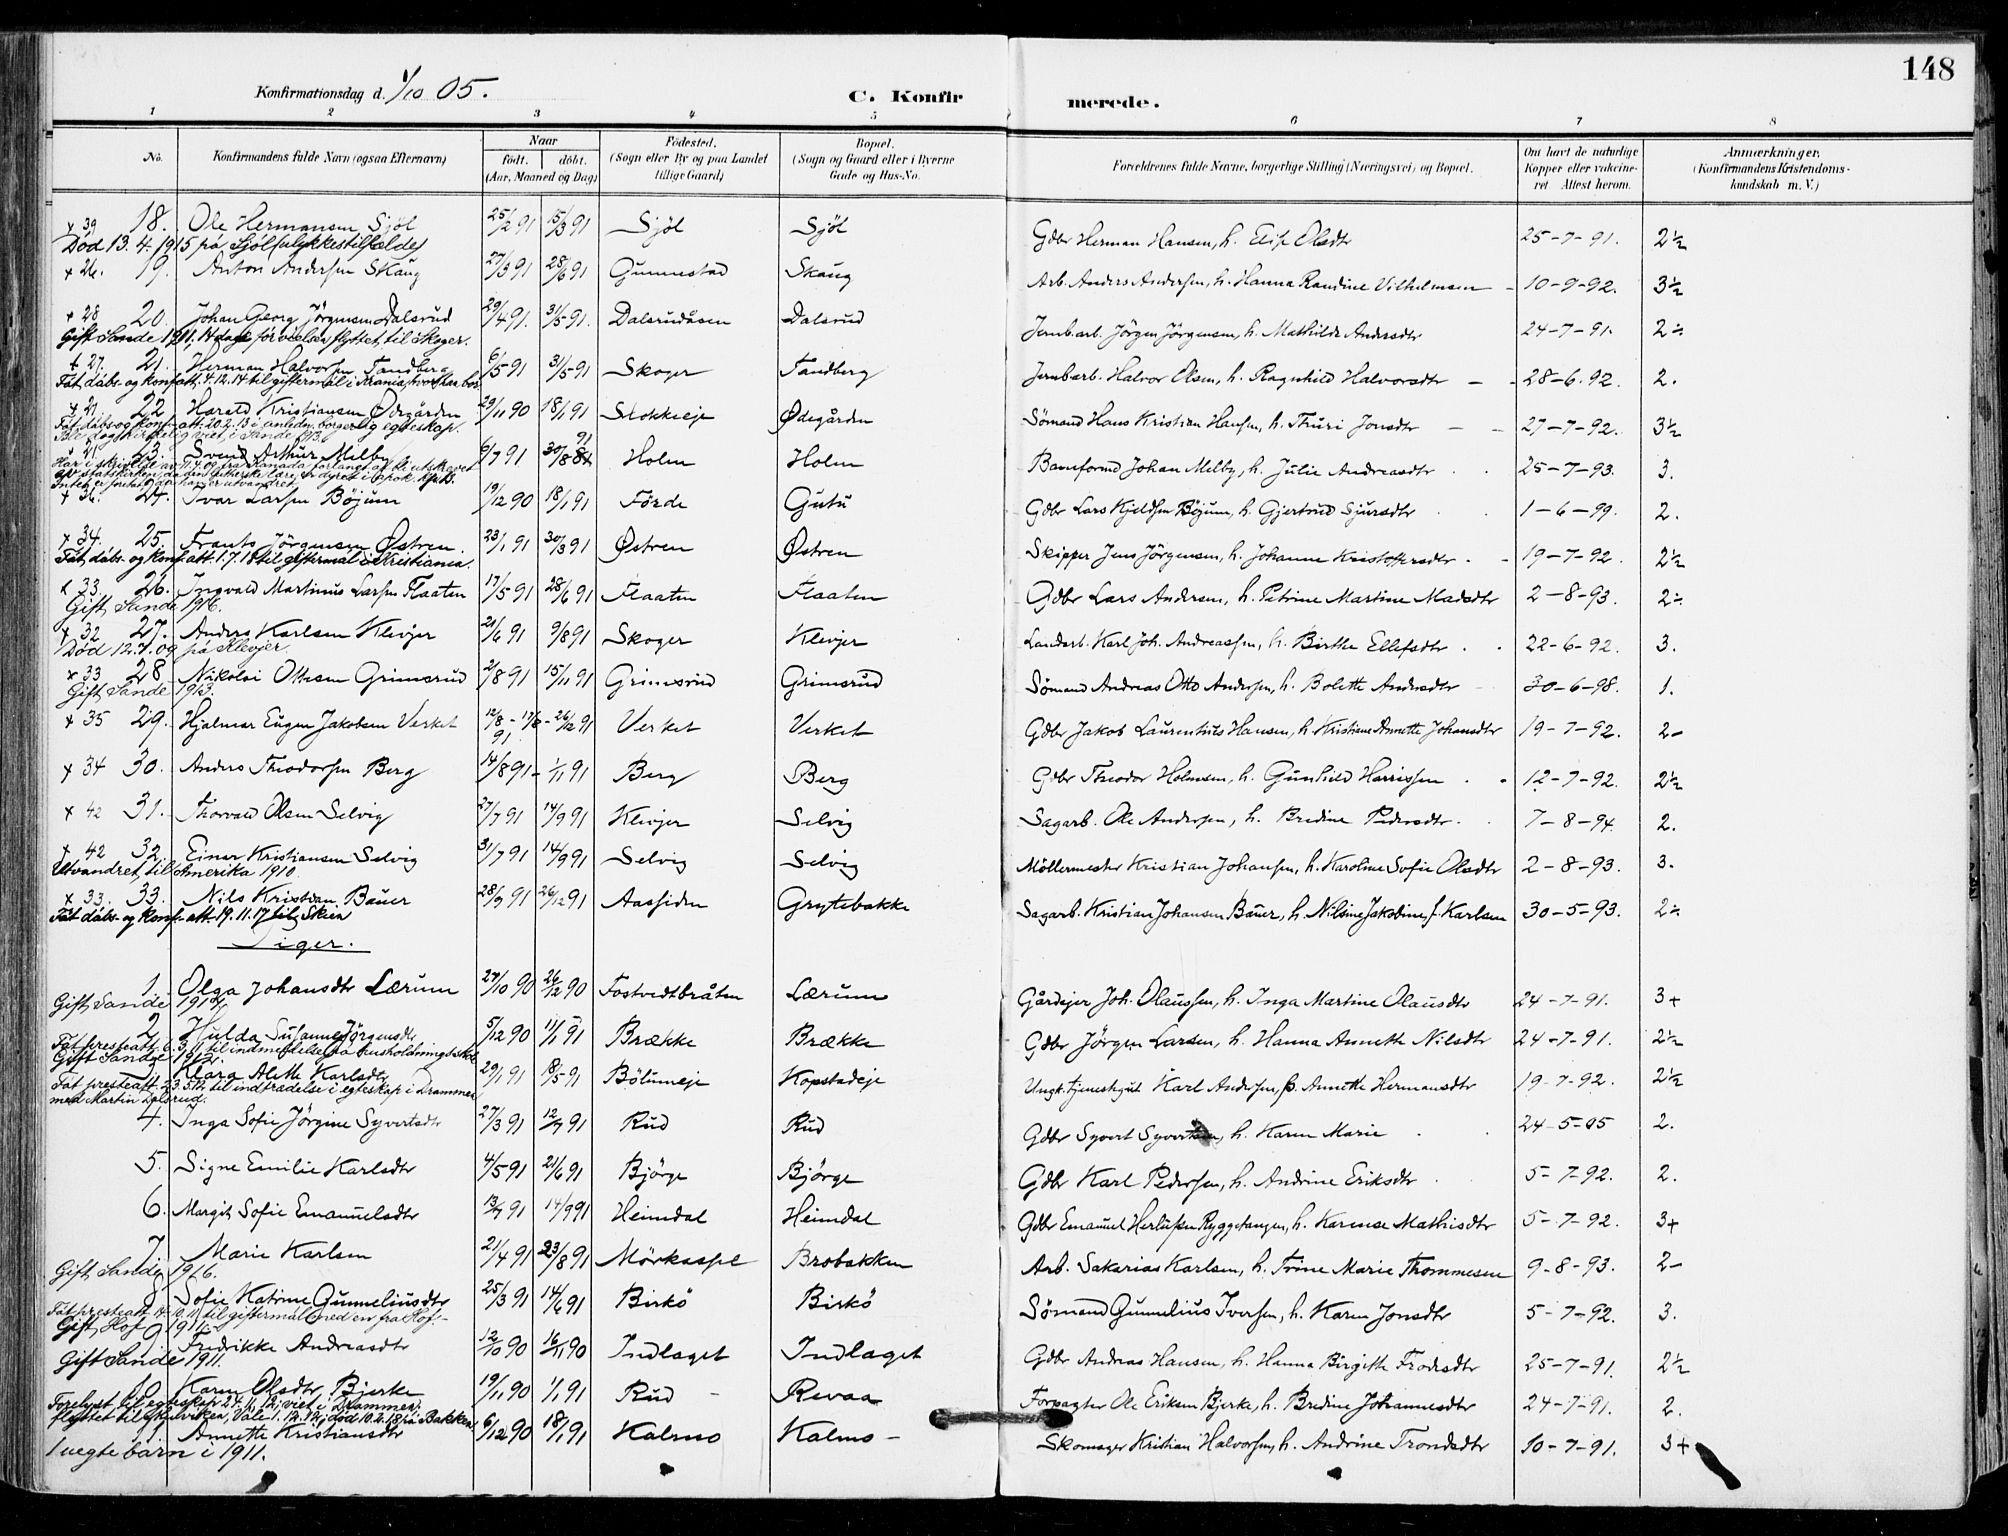 148
Konfirmationsdag d. 1/10 05.
C. Konfirmerede.
1 2 3 4 5 6 7 8
No. Konfirmandens fulde Navn (ogsaa Efternavn) Naar født. døbt. (Aar, Maaned og Dag) Fødested. (Sogn eller By og paa Landet tillige Gaard) Bopæl. (Sogn og Gaard eller i Byerne Gade og Hus-No. Forældrenes fulde Navne, borgerlige Stilling (Næringsvei) og Bopæl. Om havt de naturlige Kopper eller vakcineret. Attest herom. Anmærkninger. (Konfirmandens Kristendomskundskab m. V.)
x 39 18. Ole Hermansen Sjöl 25/2 91 15/3 91 Sjöl Sjöl Gdbr Herman Hansen, h. Elise Olsdtr 25-7-91. 2½
Död 13.4.1915 på Sjöl (ulykkestilfælde)
x 26. 19. Anton Andersen Skaug 27/3 91 28/6 91 Gunnestad Skaug Arb. Anders Andersen, h. Hanna Randine Vilhelmsen 10-9-92. 3½
x 28 20. Johan Georg Jörgensen Dalsrud 29/4 91. 31/5 91. Dalsrudåsen Dalsrud Jernb.arb. Jörgen Jörgensen, h. Mathilde Andersdtr 24-7-91. 2÷
Gift Sande 1911, 14 dage før vielsen flyttet til Skoger.
x 27. 21. Herman Halvorsen Tandberg 6/5 91 31/5 91 Skoger Tandberg Jernb.arb. Halvor Olsen, h. Ragnhild Halvorsdtr 28-6-92. 2.
Fåt dåbs- og konf.att. 4.12.14 til giftermål i Krania, hvor han bor.
x 21. 22. Harald Kristiansen Ødegården 29/11 90 18/1 91 Stokkeeje Ødegården Sömand Hans Kristian Hansen, h. Thuri Jonsdtr 27-7-92. 3½
Fåt dåbs og konf-att. 20.2.13 i anledn. borgerlig egteskap.
Ble dog kirkelig viet, i Sande 1913.
x 21. 23. Svend Arthur Milby 6/7 91 30/8 91 Holm Holm Baneformd Johan Melby, h. Julie Andreasdtr 25-7-93. 3.
x 36. 24. Ivar Larsen Böjum 19/12 90 18/1 91 Förde Gutu Gdbr Lars Kjeldsen Böjum, h. Gjertrud Sjursdtr 1-6-99. 2.
x 34. 25. Frants Jörgensen Østren. 23/1 91 30/3 91 Østren Østren Skipper Jens Jörgensen, h. Johanne Kristoffersdtr 19-7-92. 2½
Fåt dåbs- og konf.att. 1.7.18 til giftermål i Kristiania.
x 33. 26. Ingvald Martinius Larsen Flaaten 17/5 91 28/6 91 Flaaten Flaaten Gdbr Lars Andersen, h. Petrine Martine Madsdtr 2-8-93. 2÷
Gift, Sande 1916.
x 32 27. Anders Karlsen Klevjer 21/6 91 9/8 91 Skoger Klevjer Landarb. Karl Joh. Andreassen, h. Birthe Ellefsdtr 22-6-92. 3.
Död 12.7.09 på Klevjer.
x 33 28. Nikolai Ottesen Grimsrud 2/8 91 15/11 91 Grimsrud Grimsrud Sömand Andreas Otto Andersen, h. Bolette Andersdtr 30-6-98. 1.
Gift, Sande 1913.
x 35 29. Hjalmar Eugen Jakobsen Verket 12/8 - 17/8 91 - 26/12 91 Verket Verket Gdbr Jakob Laurentius Hansen, h. Kristiane Annette Johansdtr 19-7-92. 2-
x 34 30. Anders Theodorsen Berg 14/8 91 - 1/11 91 Berg Berg Gdbr Theodor Holmsen, h. Gunhild Harrissen 12-7-92. 2½
x 42 31. Thorvald Olsen Selvig 27/7 91 14/9 91 Klevjer Selvig Sagarb. Ole Andersen, h. Bredine Pedersdtr. 7-8-94. 2.
x 42 32. Einar Kristiansen Selvig 31/7 91 14/9 91 Selvig Selvig Möllermester Kristian Johansen, h. Karoline Sofie Olsdtr 2-8-93. 3.
Utvandret til Amerika 1910.
x 33. 33. Nils Kristian Bauer 28/9 91 26/12 91 Aassiden Grytebakke Sagarb. Kristian Johansen Bauer, h. Nilsine Jakobine f. Karlsen 30-5-93. 2÷
Fåt dåbs- og konf-att. 19.11.17 til Skien
Piger.
1. Olga Johansdtr Lærum 27/10 90 26/12 90 Tostvedtbråten Lærum Gårdejer Joh. Olaussen, h. Inga Martine Olausdtr 24-7-91. 3+
Gift, Sande 1914.
2. Hulda Susanne Jörgensdtr 5/12 90 11/1 91 Brække Brække Gdbr Jörgen Larsen, h. Hanna Annette Nilsdtr 24-7-91. 2½
Gift Sande 1912.
3. Klara Alette Karlsdtr 29/1 91 18/5 91 Bölumeje Kopstadeje Ungk. tjenestegut Karl Andersen, p. Annette Hermansdtr 19-7-92. 2½
Fåt presteatt. 23.5.12 til indtrædelse i egteskap i Drammen
med Martin Dalsrud.
4. Inga Sofie Jörgine Syvertsdtr 27/3 91 12/7 91 Rud Rud Gdbr Syvert Syvertsen, h. Karen Marie 24-5-05 2.
5. Signe Emilie Karlsdtr 4/5 91 21/6 91 Björge Björge Gdbr Karl Pedersen, h. Andrine Eriksdtr 5-7-92. 2.
6. Margit Sofie Emanuelsdtr 13/7 91 14/9 91 Heimdal Heimdal Gdbr Emanuel Herlufsen Ryggetangen, h. Karense Mathisdtr 5-7-92. 3+
7. Marie Karlsen 21/4 91 23/8 91 Mörkaspl Brobakken Arb. Sakarias Karlsen, h. Trine Marie Thommesen 9-8-93. 2-
Gift, Sande 1916.
8. Sofie Katrine Gunneliusdtr 25/3 91 14/6 91 Birkö Birkö Sömand Gunnelius Iversen, h. Karen Jonsdtr 5-7-92. 3.
Fåt presteatt. 4.10.11 til giftermål med en fra Hof.-
Gift, Hof 1911.
9. Fredrikke Andreasdtr 12/10 90 16/11 90 Indlaget Indlaget Gdbr Andreas Hansen, h. Hanna Birgitte Frodesdtr 25-7-91. 2½
Gift Sande 1911.
10. Karen Olsdtr Bjerke 19/11 90 1/1 91 Rud Revaa Forpagter Ole Eriksen Bjerke, h. Bredine Johannesdtr 24-7-91. 2.
11. Annette Kristiansdtr 6/12 90 18/1 91 Kalmo Kalmo Skomager Kristian Halvorsen, h. Andrine Trondsdtr 10-7-91. 3+
1 uegte barn i 1911.